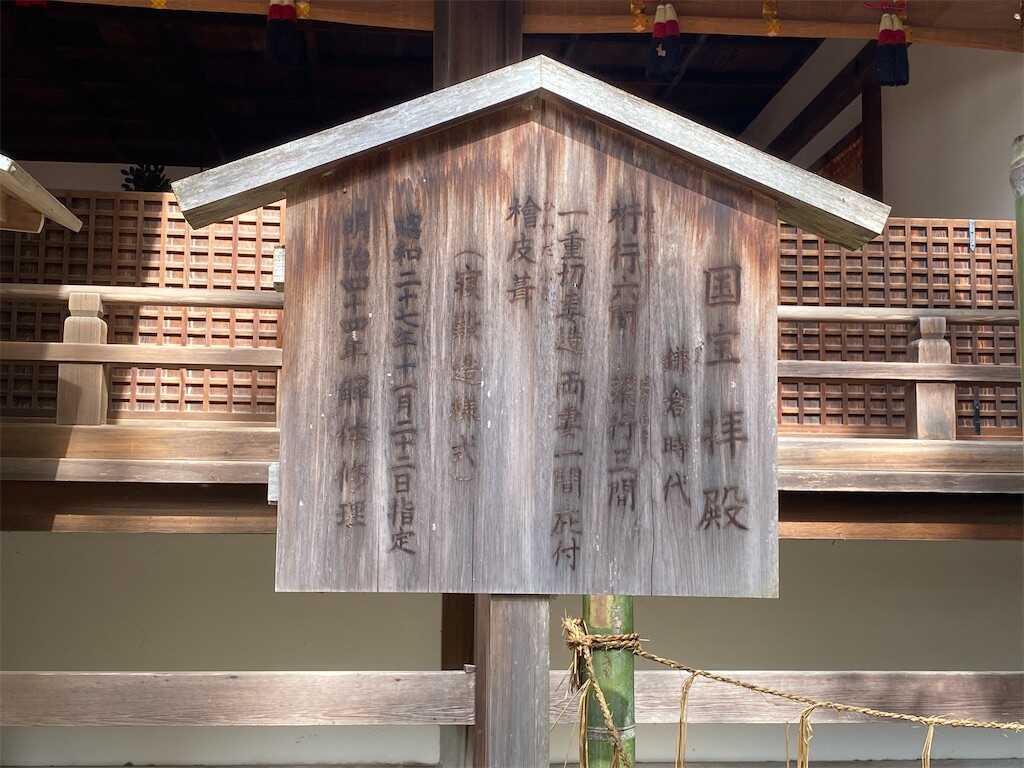 国宝拝殿
鎌倉時代
桁行六間 梁行三間
一重切妻造両妻一間庇付
檜皮葺
(寝殿造様式)
昭和二十七年十一月二十二日指定
明治四十四年解体修理